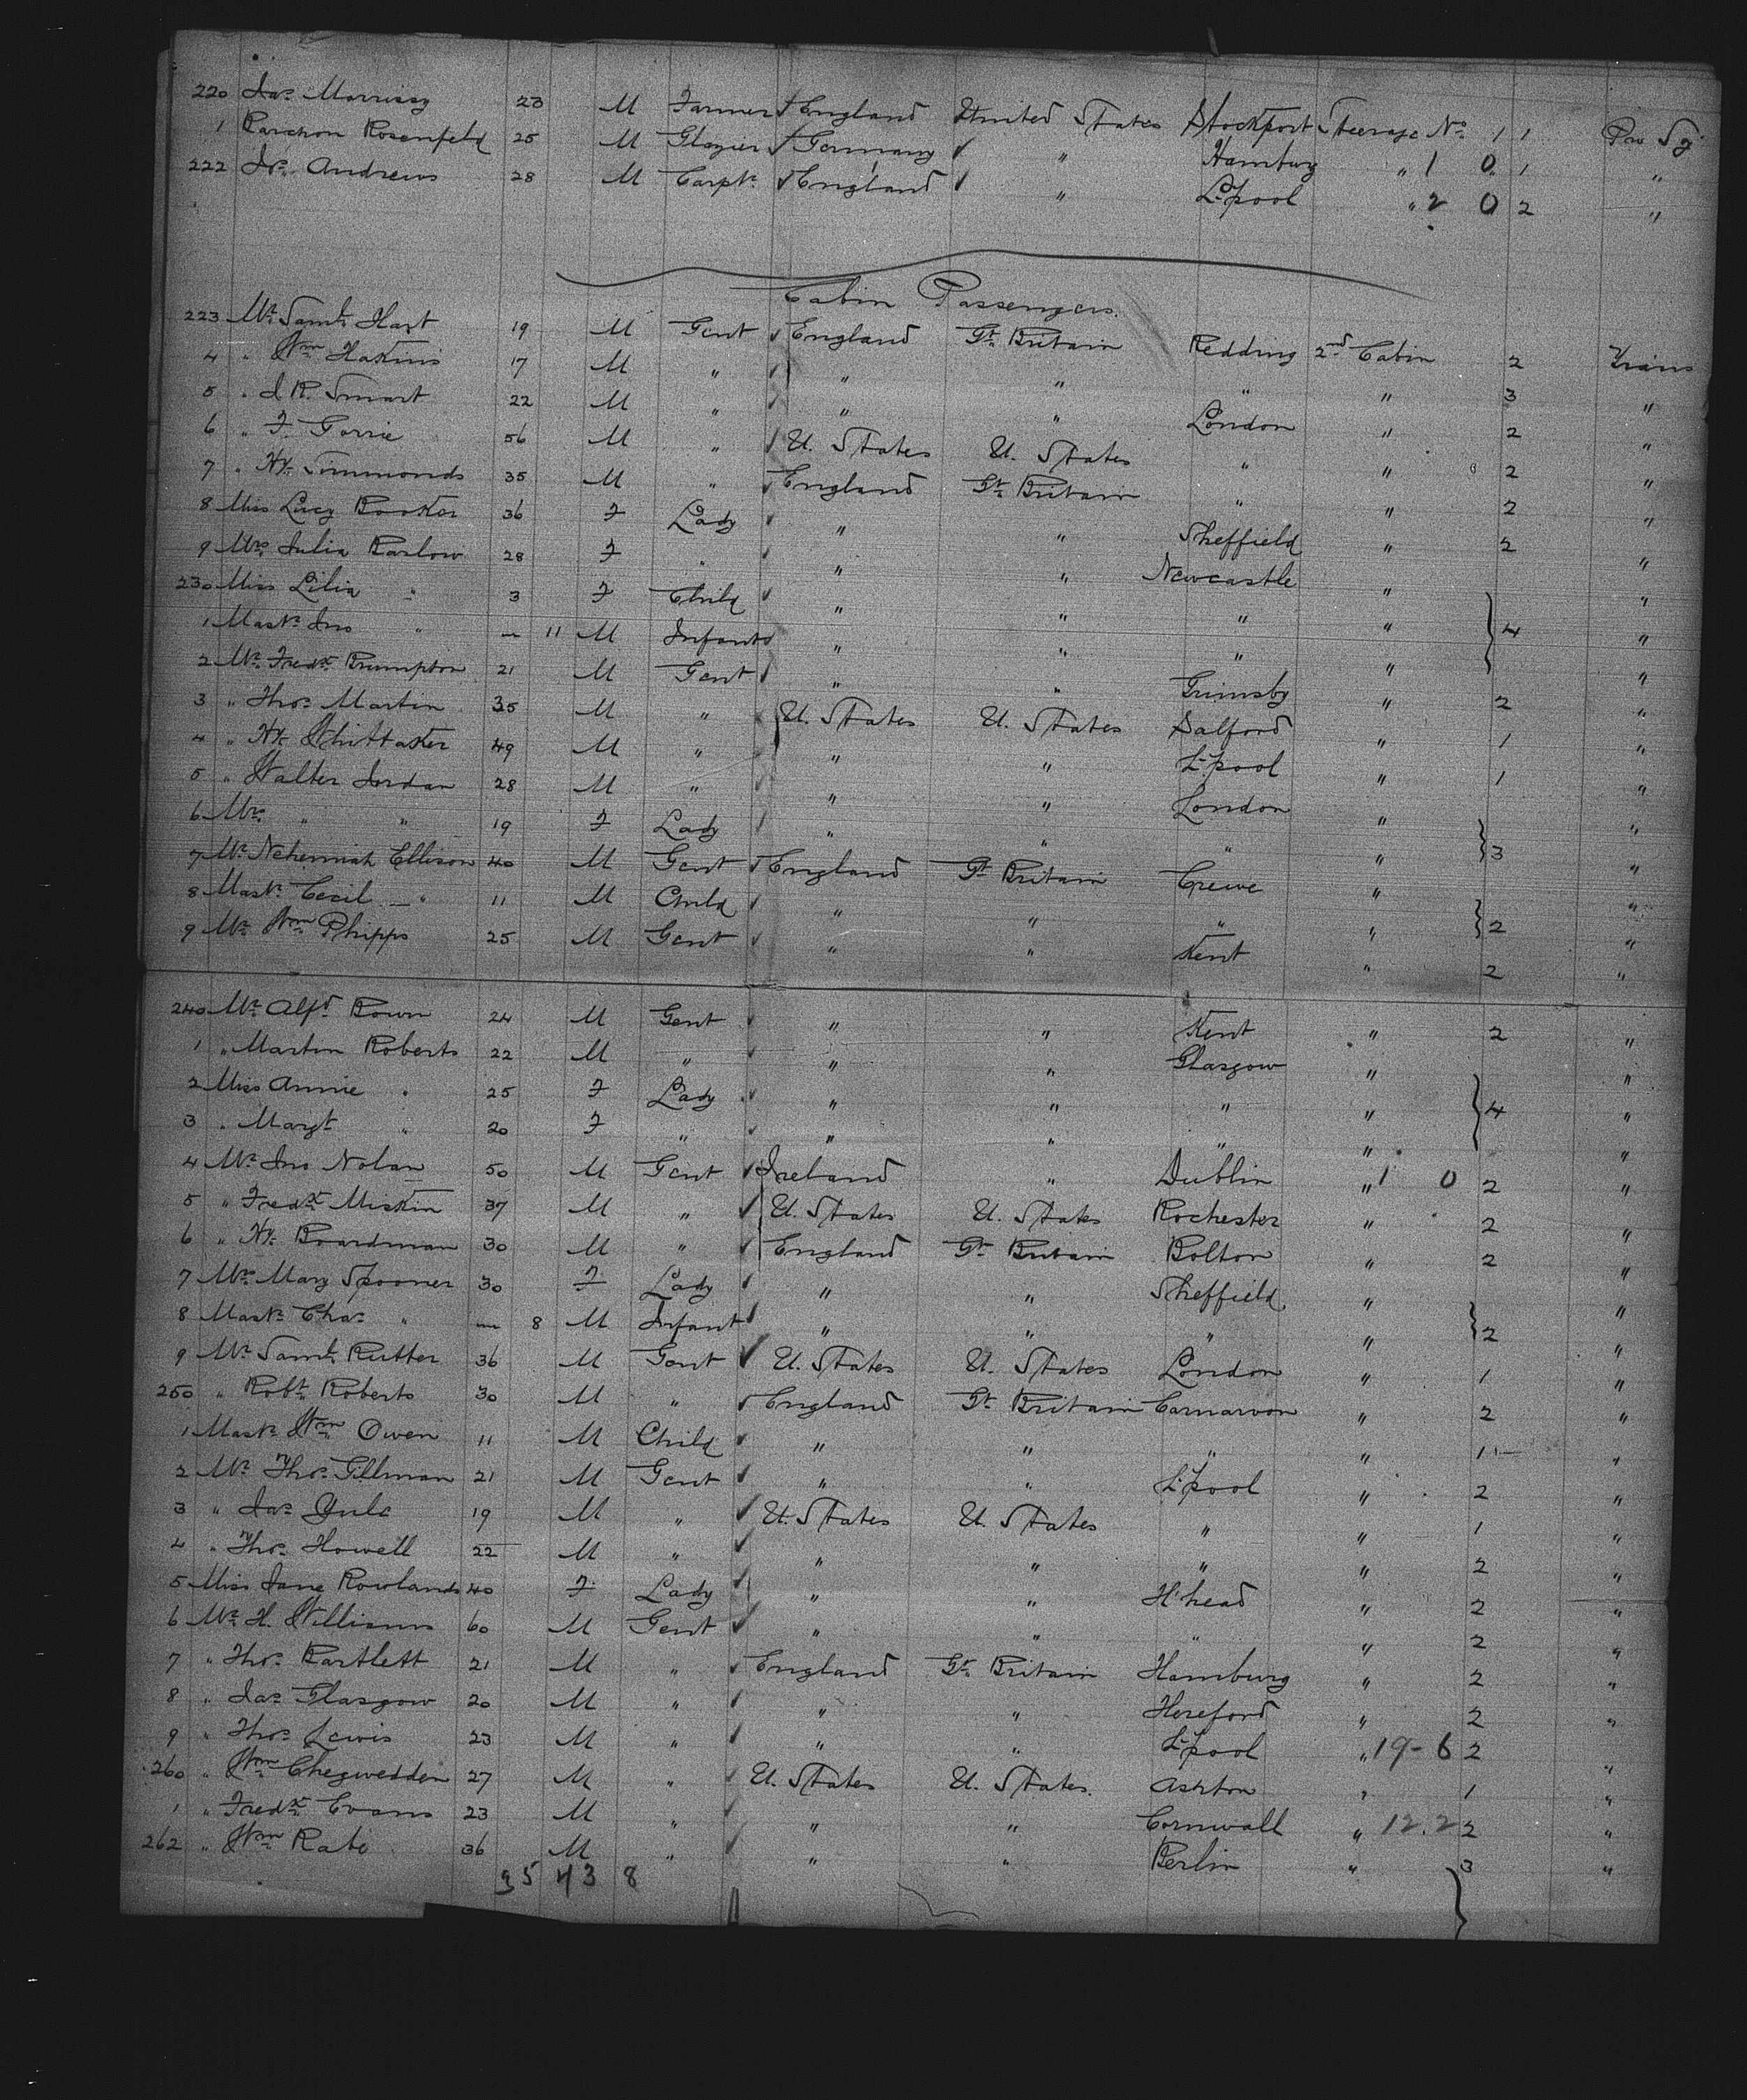 220 Jas. Morrissy 23 M Farmer England United States Stockport Steerage No. 1 1 Pro Sj.
1 Rarchon Rosenfeld 25 M Glazier Germany " Hamburg " 1 0 1 "
222 Jno. Andrews 28 M Carptr. England " L'pool " 2 0 2 "
Cabin Passengers.
223 Mr. Saml. Hart 19 M Gent England Gt. Britain Redding 2nd Cabin 2
4 " Wm. Hakins 17 M " " " " " 3 "
5 " J. R. Smart 22 M " " " London " 2 "
6 " F. Gorrie 56 M " U. States U. States " " 2 "
7 " Hy. Simmonds 35 M " England Gt. Britain " " 2 "
8 Miss Lucy Booker 36 F Lady " " Sheffield " 2 "
9 Mrs. Julia Barlow 28 F " " " Newcastle " "
230 Miss Lilia " 3 F Child " " " " 4 "
1 Mastr. Jno " — 11 M Infant " " " " "
2 Mr. Fredk. Brumpton 21 M Gent " " Grimsby " 2 "
3 " Thos. Martin 35 M " U. States U. States Salford " 1 "
4 " Hy. Whittaker 49 M " " " L'pool " 1 "
5 " Walter Jordan 28 M " " " London " "
6 Mrs. " " 19 F Lady " " " " 3 "
7 Mr. Nehemiah Ellison 40 M Gent England Gt. Britain Crewe " "
8 Mastr. Cecil — " 11 M Child " " " " 2 "
9 Mr. Wm. Phipps 25 M Gent " " Kent " 2 "
240 Mr. Alfd. Bown 24 M Gent " " Kent " 2 "
1 " Martin Roberts 22 M " " " Glasgow " "
2 Miss Annie " 25 F Lady " " " " 4 "
3 " Margt. " 20 F " " " " " "
4 Mr. Jno Nolan 50 M Gent Ireland " Dublin " 1 0 2 "
5 " Fredk. Miskin 37 M " U. States U. States Rochester " 2 "
6 " Hy. Boardman 30 M " England Gt. Britain Bolton " 2 "
7 Mrs. Mary Spooner 30 F Lady " " Sheffield " "
8 Mastr. Chas. " — 8 M Infant " " " " 2 "
9 Mr. Saml. Rutter 36 M Gent U. States U. States London " 1 "
250 " Robt. Roberts 30 M " England Gt. Britain Carnarvon " 2 "
1 Mastr. Wm. Owen 11 M Child " " " " 1 "
2 Mr. Thos. Gillman 21 M Gent " " L'pool " 2 "
3 " Jas. Yule 19 M " U. States U. States " " 1 "
4 " Thos. Howell 22 M " " " " " 2 "
5 Miss Jane Rowlands 40 F Lady " " H'head " 2 "
6 Mr. H. Williams 60 M Gent " " " " 2 "
7 " Thos. Bartlett 21 M " England Gt. Britain Hamburg " 2 "
8 " Jas. Glasgow 20 M " " " Hereford " 2 "
9 " Thos. Lewis 23 M " " " L'pool " 19-6 2 "
260 " Wm. Chegwedden 27 M " U. States U. States. Ashton " 1 "
1 " Fredk. Evans 23 M " " " Cornwall " 12.2 2 "
262 " Wm. Rabe 36 M " " " Berlin " 3 "
35 43 8